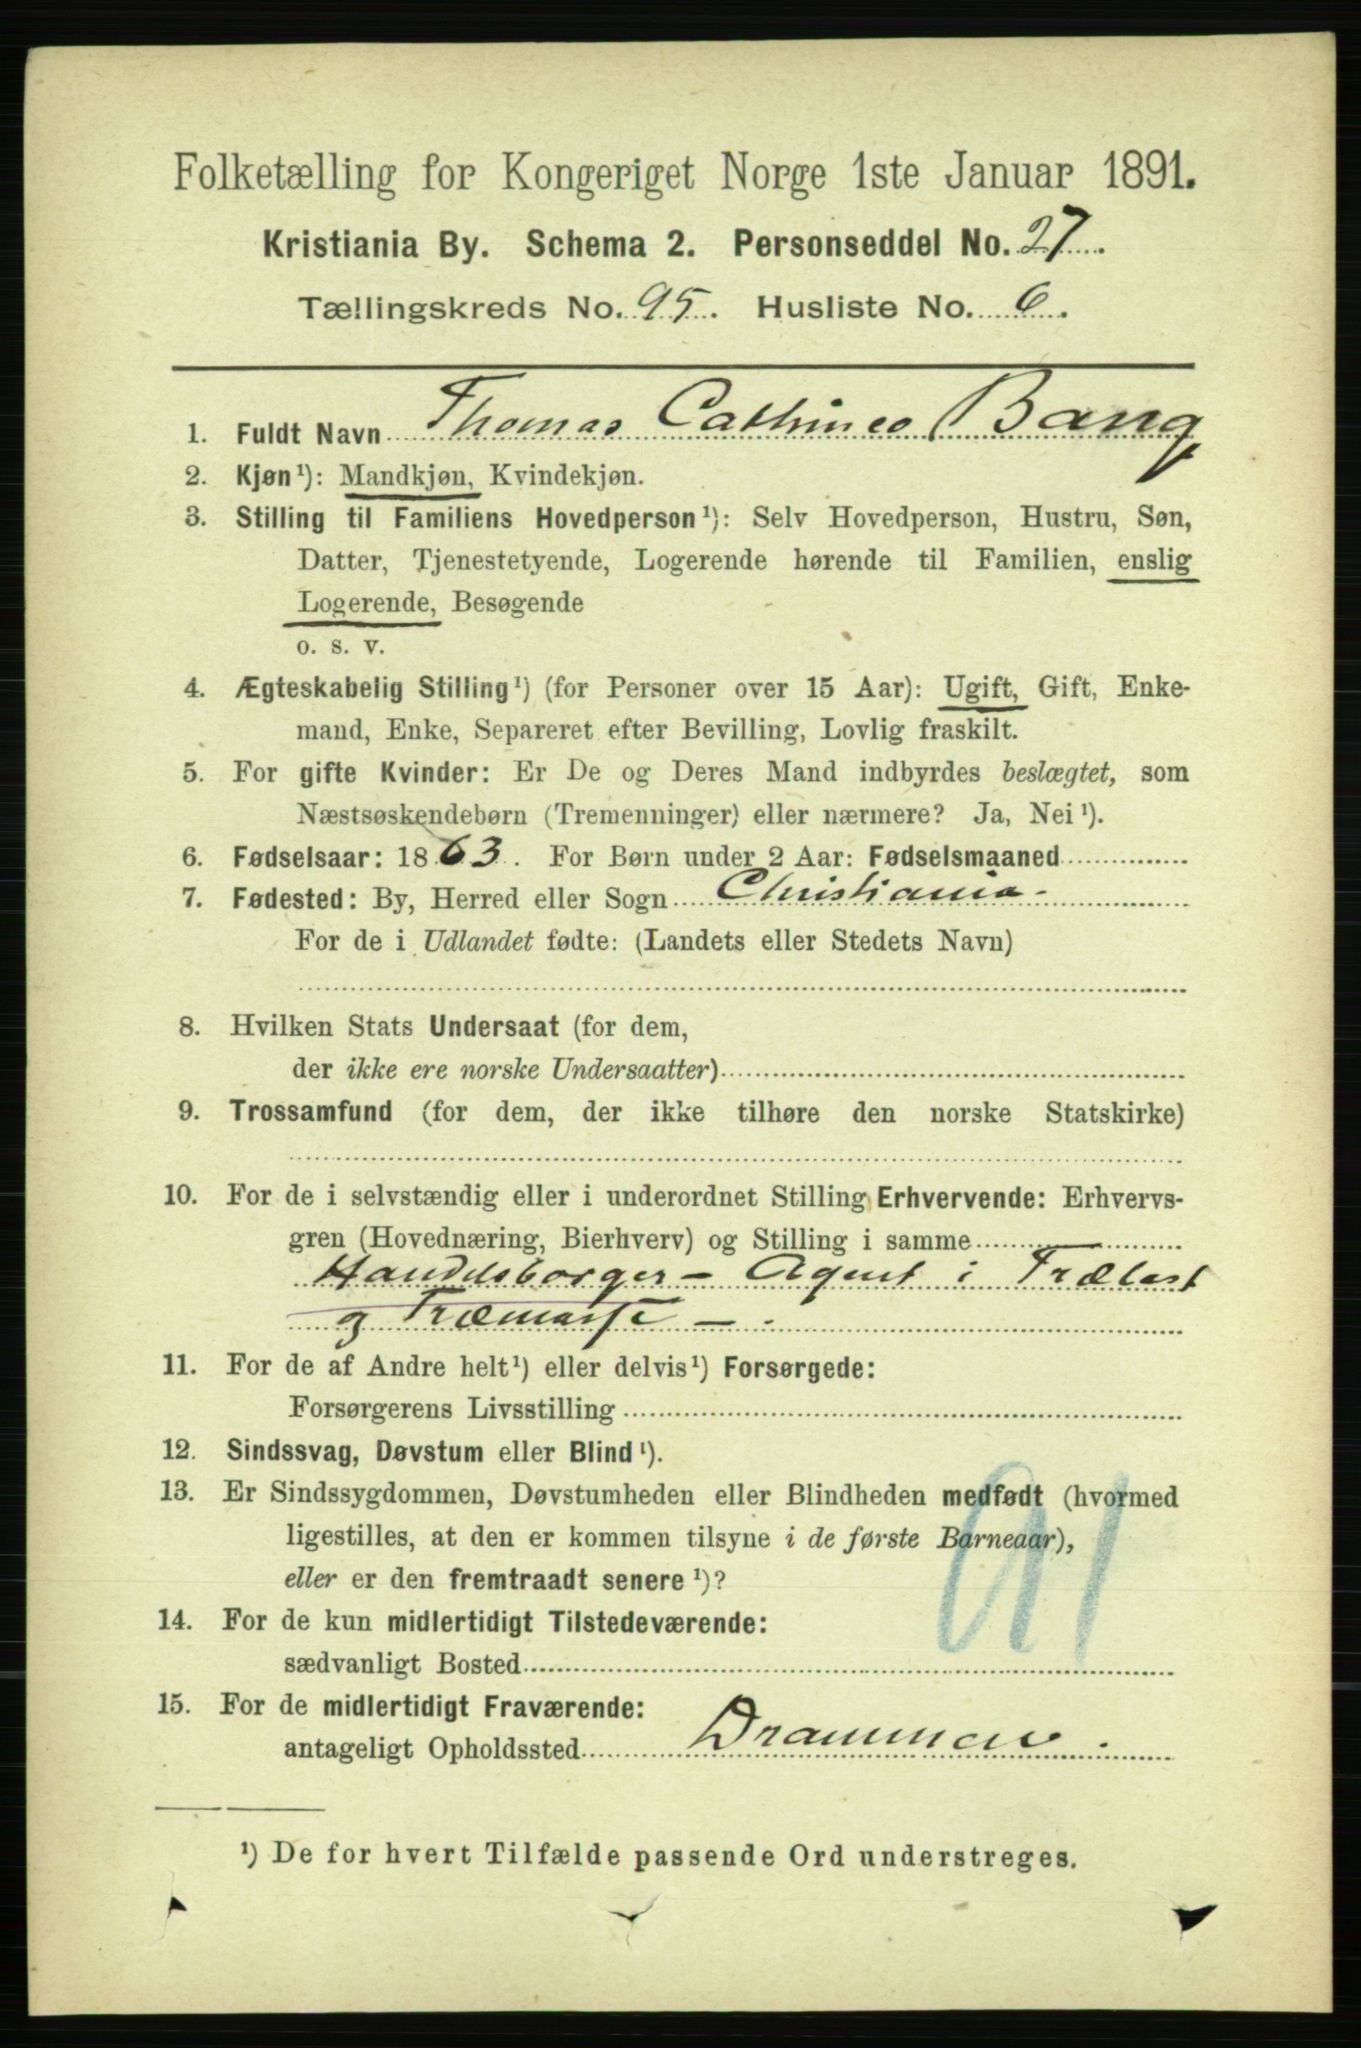 Folketælling for Kongeriget Norge 1ste Januar 1891.
Kristiania By. Schema 2. Personseddel No. 27.
Tællingskreds No. 95. Husliste No. 6.
1. Fuldt Navn Thomas Cathrineo Bang
2. Kjøn¹): Mandkjøn, Kvindekjøn.
3. Stilling til Familiens Hovedperson¹): Selv Hovedperson, Hustru, Søn,
Datter, Tjenestetyende, Logerende hørende til Familien, enslig
Logerende, Besøgende
o. s. v.
4. Ægteskabelig Stilling¹) (for Personer over 15 Aar): Ugift, Gift, Enke-
mand, Enke, Separeret efter Bevilling, Lovlig fraskilt.
5. For gifte Kvinder: Er De og Deres Mand indbyrdes beslægtet, som
Næstsøskendebørn (Tremenninger) eller nærmere? Ja, Nei¹).
6. Fødselsaar: 1863. For Børn under 2 Aar: Fødselsmaaned
7. Fødested: By, Herred eller Sogn Christiania -
For de i Udlandet fødte: (Landets eller Stedets Navn)
8. Hvilken Stats Undersaat (for dem,
der ikke ere norske Undersaatter)
9. Trossamfund (for dem, der ikke tilhøre den norske Statskirke)
10. For de i selvstændig eller i underordnet Stilling Erhvervende: Erhvervs-
gren (Hovednæring, Bierhverv) og Stilling i samme
Handelsborger - Agent i Trælast
og Træmasse -
11. For de af Andre helt¹) eller delvis¹) Forsørgede:
Forsørgerens Livsstilling
12. Sindssvag, Døvstum eller Blind¹).
13. Er Sindssygdommen, Døvstumheden eller Blindheden medfødt (hvormed
ligestilles, at den er kommen tilsyne i de første Barneaar),
eller er den fremtraadt senere¹)?
14. For de kun midlertidigt Tilstedeværende:
sædvanligt Bosted
15. For de midlertidigt Fraværende:
antageligt Opholdssted Drammen.
¹) De for hvert Tilfælde passende Ord understreges.